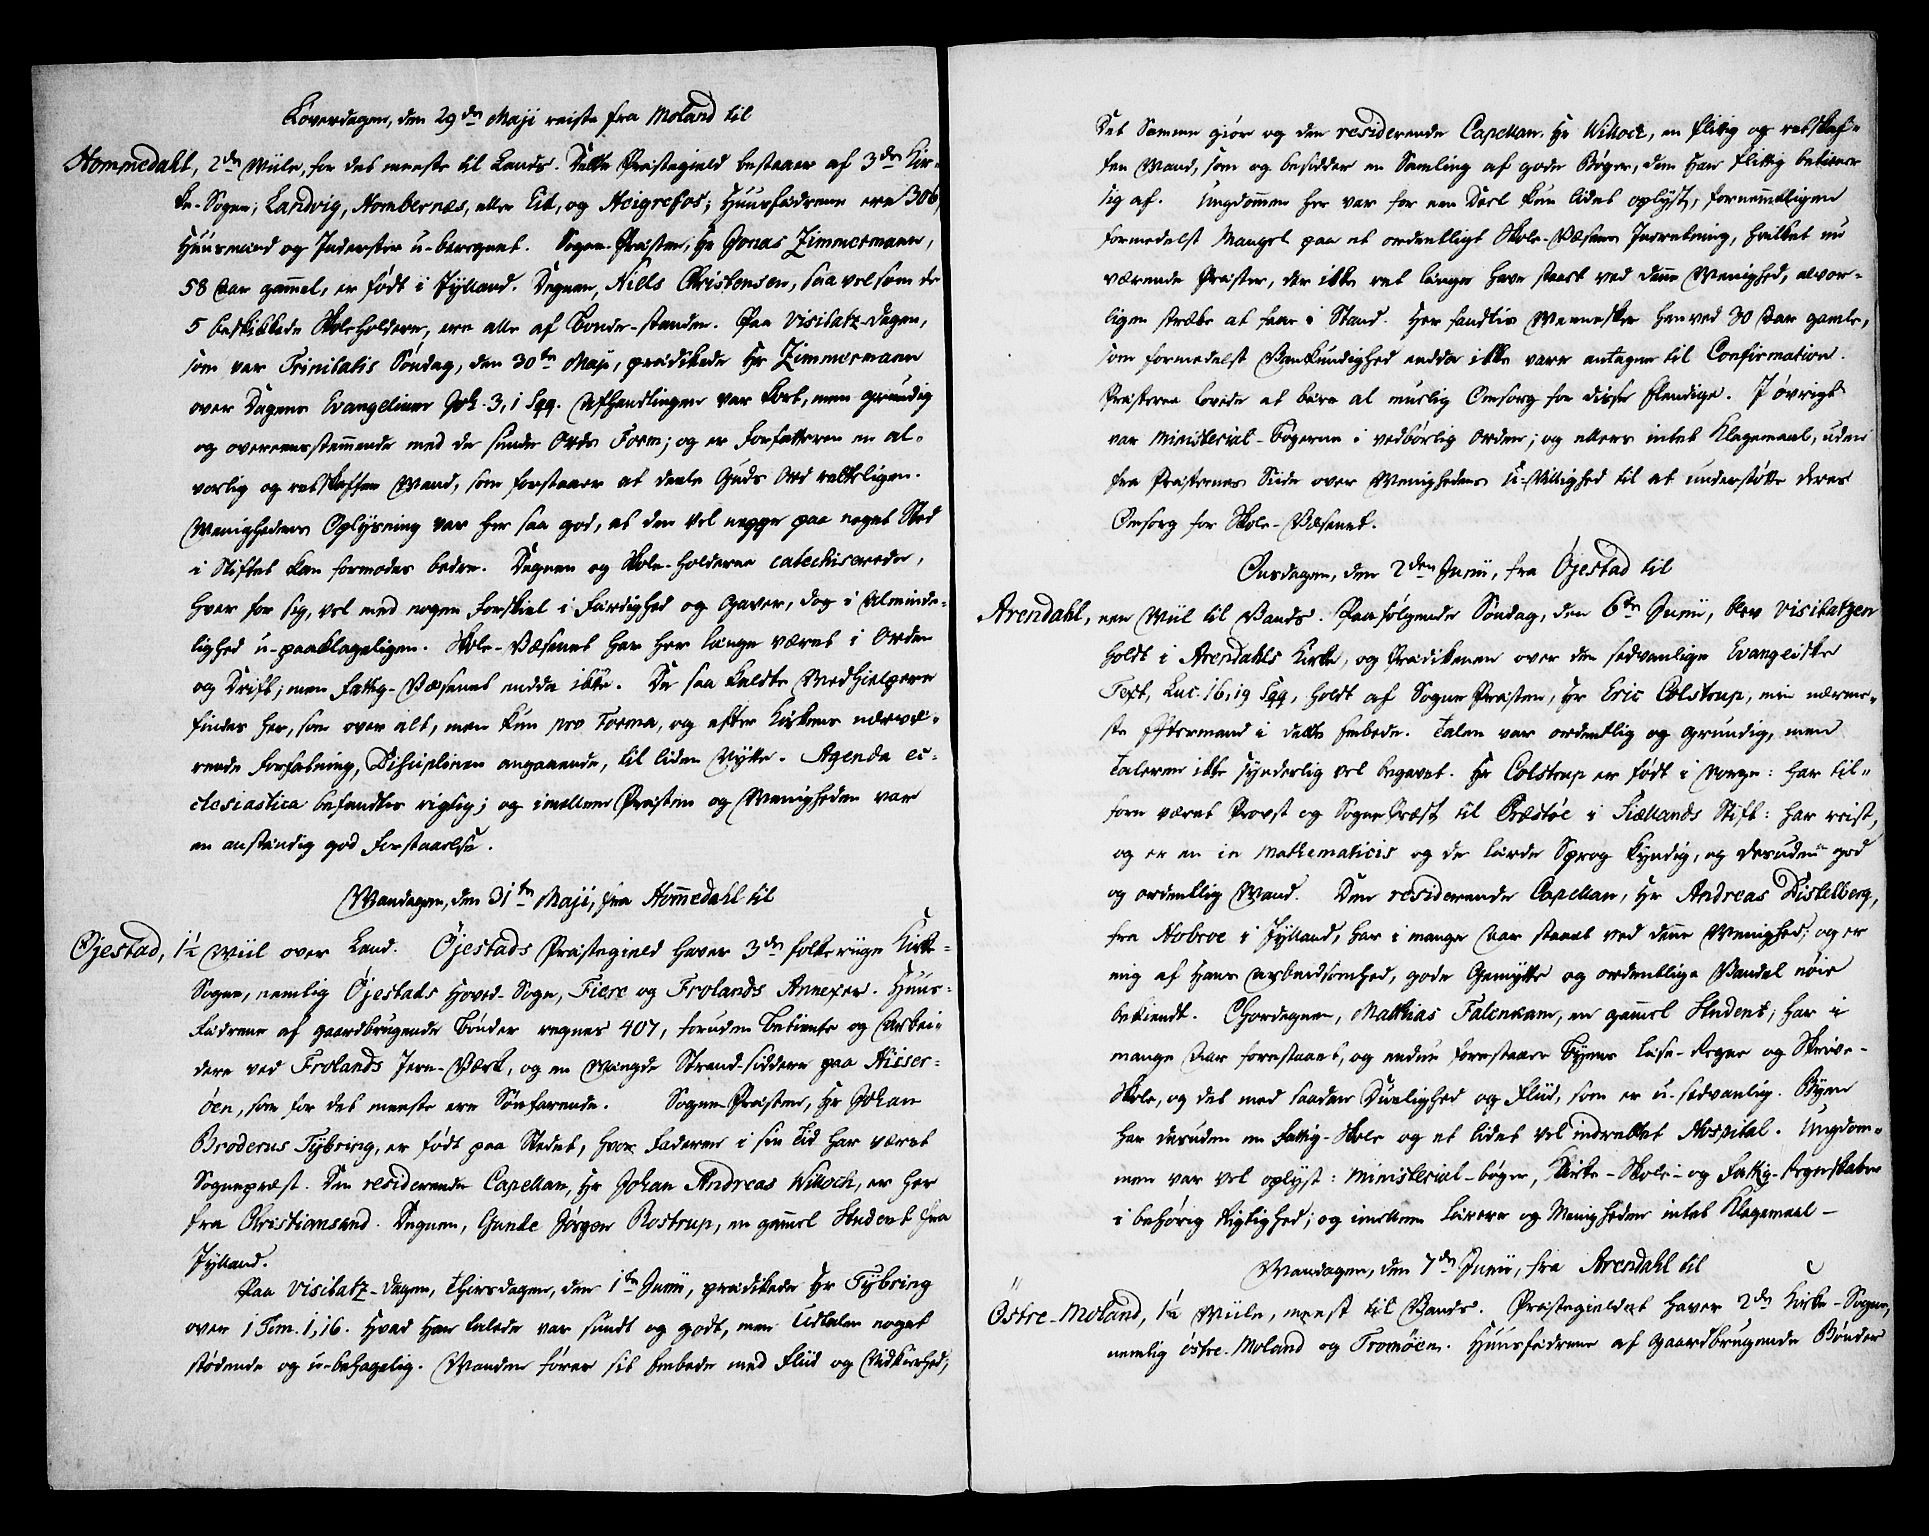 Løverdagen, den 29de Maji reiste fra Moland til
Hommedahl, 2de Miile, for det meeste til Lands. Dette Præstegield bestaaer af 3de Kir-
ke-Sogne; Landvig, Hombernæs, eller Eid, og Heigrefos; Huusfædrene ere 306,
Huusmænd og Inderster u-beregnet. Sogne-Præsten, Hr Jonas Zimmermann,
58 Aar gammel, er født i Jylland. Degnen, Niels Christensen, saa vel som de
5 beskikkede Skoleholdere, ere alle af Bonde-standen. Paa Visitatz-Dagen,
som var Trinitatis Søndag, den 30te Maji, prædikede Hr Zimmermann
over Dagens Evangelium Joh. 3, 1 sqq. Afhandlingen var kort, men grundig
og overeensstemmende med de sunde Ords Form; og er Forfatteren en al-
vorlig og retskaffen Mand, som forstaaer at deele Guds Ord retteligen.
Menighedens Oplysning var her saa god, at den vel neppe paa noget Sted
i Stiftet kan formodes bedre. Degnen og Skole-Holderne catechiserede,
hver for sig, vel med nogen Forskiel i Færdighed og Gaver, dog i Alminde-
lighed u-paaklageligen. Skole-Væsenet har her længe været i Orden
og Drift; men Fattig-Væsenet endda ikke. De saa kaldte Medhielpere
findes her, som over alt, men kun pro Forma, og efter Kirkens nærvæ-
rende Forfatning, Disciplinen angaaende, til liden Nytte. Agenda ec-
clesiastica befandtes rigtig; og imellem Præsten og Menigheden var
en anstændig god Forstaaelse.
Mandagen, den 31te Maji, fra Hommedahl til
Øjestad, 1½ Miil over Land. Øjestads Præstegield haver 3de folkerige Kirke-
Sogne, nemlig Øjestads Hoved-Sogn, Fiere og Frolands Annexer. Huus-
fædrene af gaardbrugende Bønder regnes 407, foruden Betiente og Arbei-
dere ved Frolands Jern-Værk, og en Mængde Strand-siddere paa Hisser-
øen, som for det meeste ere Søefarende. Sogne-Præsten, Hr Johan
Broderus Tybring, er født paa Stedet, hvor Faderen i sin Tid har været
Sognepræst. Den residerende Capellan, Hr Johan Andreas Willoch, er her
fra Christiansand. Degnen, Gunde Jørgen Rostrup, en gammel Student fra
Jylland.
Paa Visitatz-Dagen, Thirsdagen, den 1te Junii, prædikede Hr Tybring
over 1 Tim. 1, 16. Hvad han talede var sundt og godt, men Udtalen noget
stødende og u-behagelig. Manden fører sit Embede med Fliid og Nidkierhed;
Det Samme giør og den residerende Capellan Hr Willoch, en flittig og retskaf-
fen Mand, som og besidder en Samling af gode Bøger, dem han flittig betiener
sig af. Ungdommen her var for een Deel kun lidet oplyst, fornemmeligen
formedelst Mangel paa et ordentligt Skole-Væsens Indretning, hvilket nu
værende Præster, der ikke ret længe have staaet ved denne Menighed, alvor-
ligen stræbe at faae i Stand. Her fandtes Mennesker henved 30 Aar gamle,
som formedelst Vankundighed endda ikke vare antagne til Confirmation.
Præsterne lovede at bære al muelig Omsorg for disse Elendige. I øvrigt
var Ministerial-Bøgerne i vedbørlig Orden; og ellers intet Klagemaal, uden
fra Præsternes Siide over Menighedens U-Villighed til at understøtte deres
Omsorg for Skole-Væsenet.
Onsdagen, den 2den Junii, fra Øjestad til
Arendahl, een Miil til Vands. Paafølgende Søndag, den 6te Junii, blev Visitatzen
holdt i Arendahls Kirke, og Prædikenen over den sedvanlige Evangeliske
Text, Luc. 16, 19 sqq, holdt af Sogne Præsten, Hr Eric Colstrup, min nærme-
ste Eftermand i dette Embede. Talen var ordentlig og grundig, men
Taleren ikke synderlig vel begavet. Hr Colstrup er født i Norge: har til-
forn været Provst og SognePræst til Præstøe i Siællands Stift: har reist,
og er en in Mathematicis og de lærde Sprog kyndig, og desuden god
og ordentlig Mand. Den residerende Capellan, Hr Andreas Distelberg,
fra Hobroe i Jylland, har i mange Aar staaet ved denne Menighed, og er
mig af hans Arbeidsomhed, gode Gemytte og ordentlige Vandel nøie
bekiendt. Chordegnen, Matthias Falenkam, en gammel Student, har i
mange Aar forestaaet, og endnu forestaaer Byens Læse-Regne og Skrive-
Skole, og det med saadan Duelighed og Fliid, som er u-sedvanlig. Byen
har desuden en Fattig-Skole og et lidet vel indrettet Hospital. Ungdom-
men var vel oplyst: Ministerial-bøger, Kirke-Skole- og Fattig-Regnskaber
i behørig Rigtighed; og imellem Lærere og Menigheden intet Klagemaal-
Mandagen, den 7de Junii, fra Arendahl til
Østre-Moland, 1½ Miile, meest til Vands. Præstegieldet haver 2de Kirke-Sogne,
nemlig Østre-Moland og Tromøen. Huusfædrene af gaardbrugende Bønder